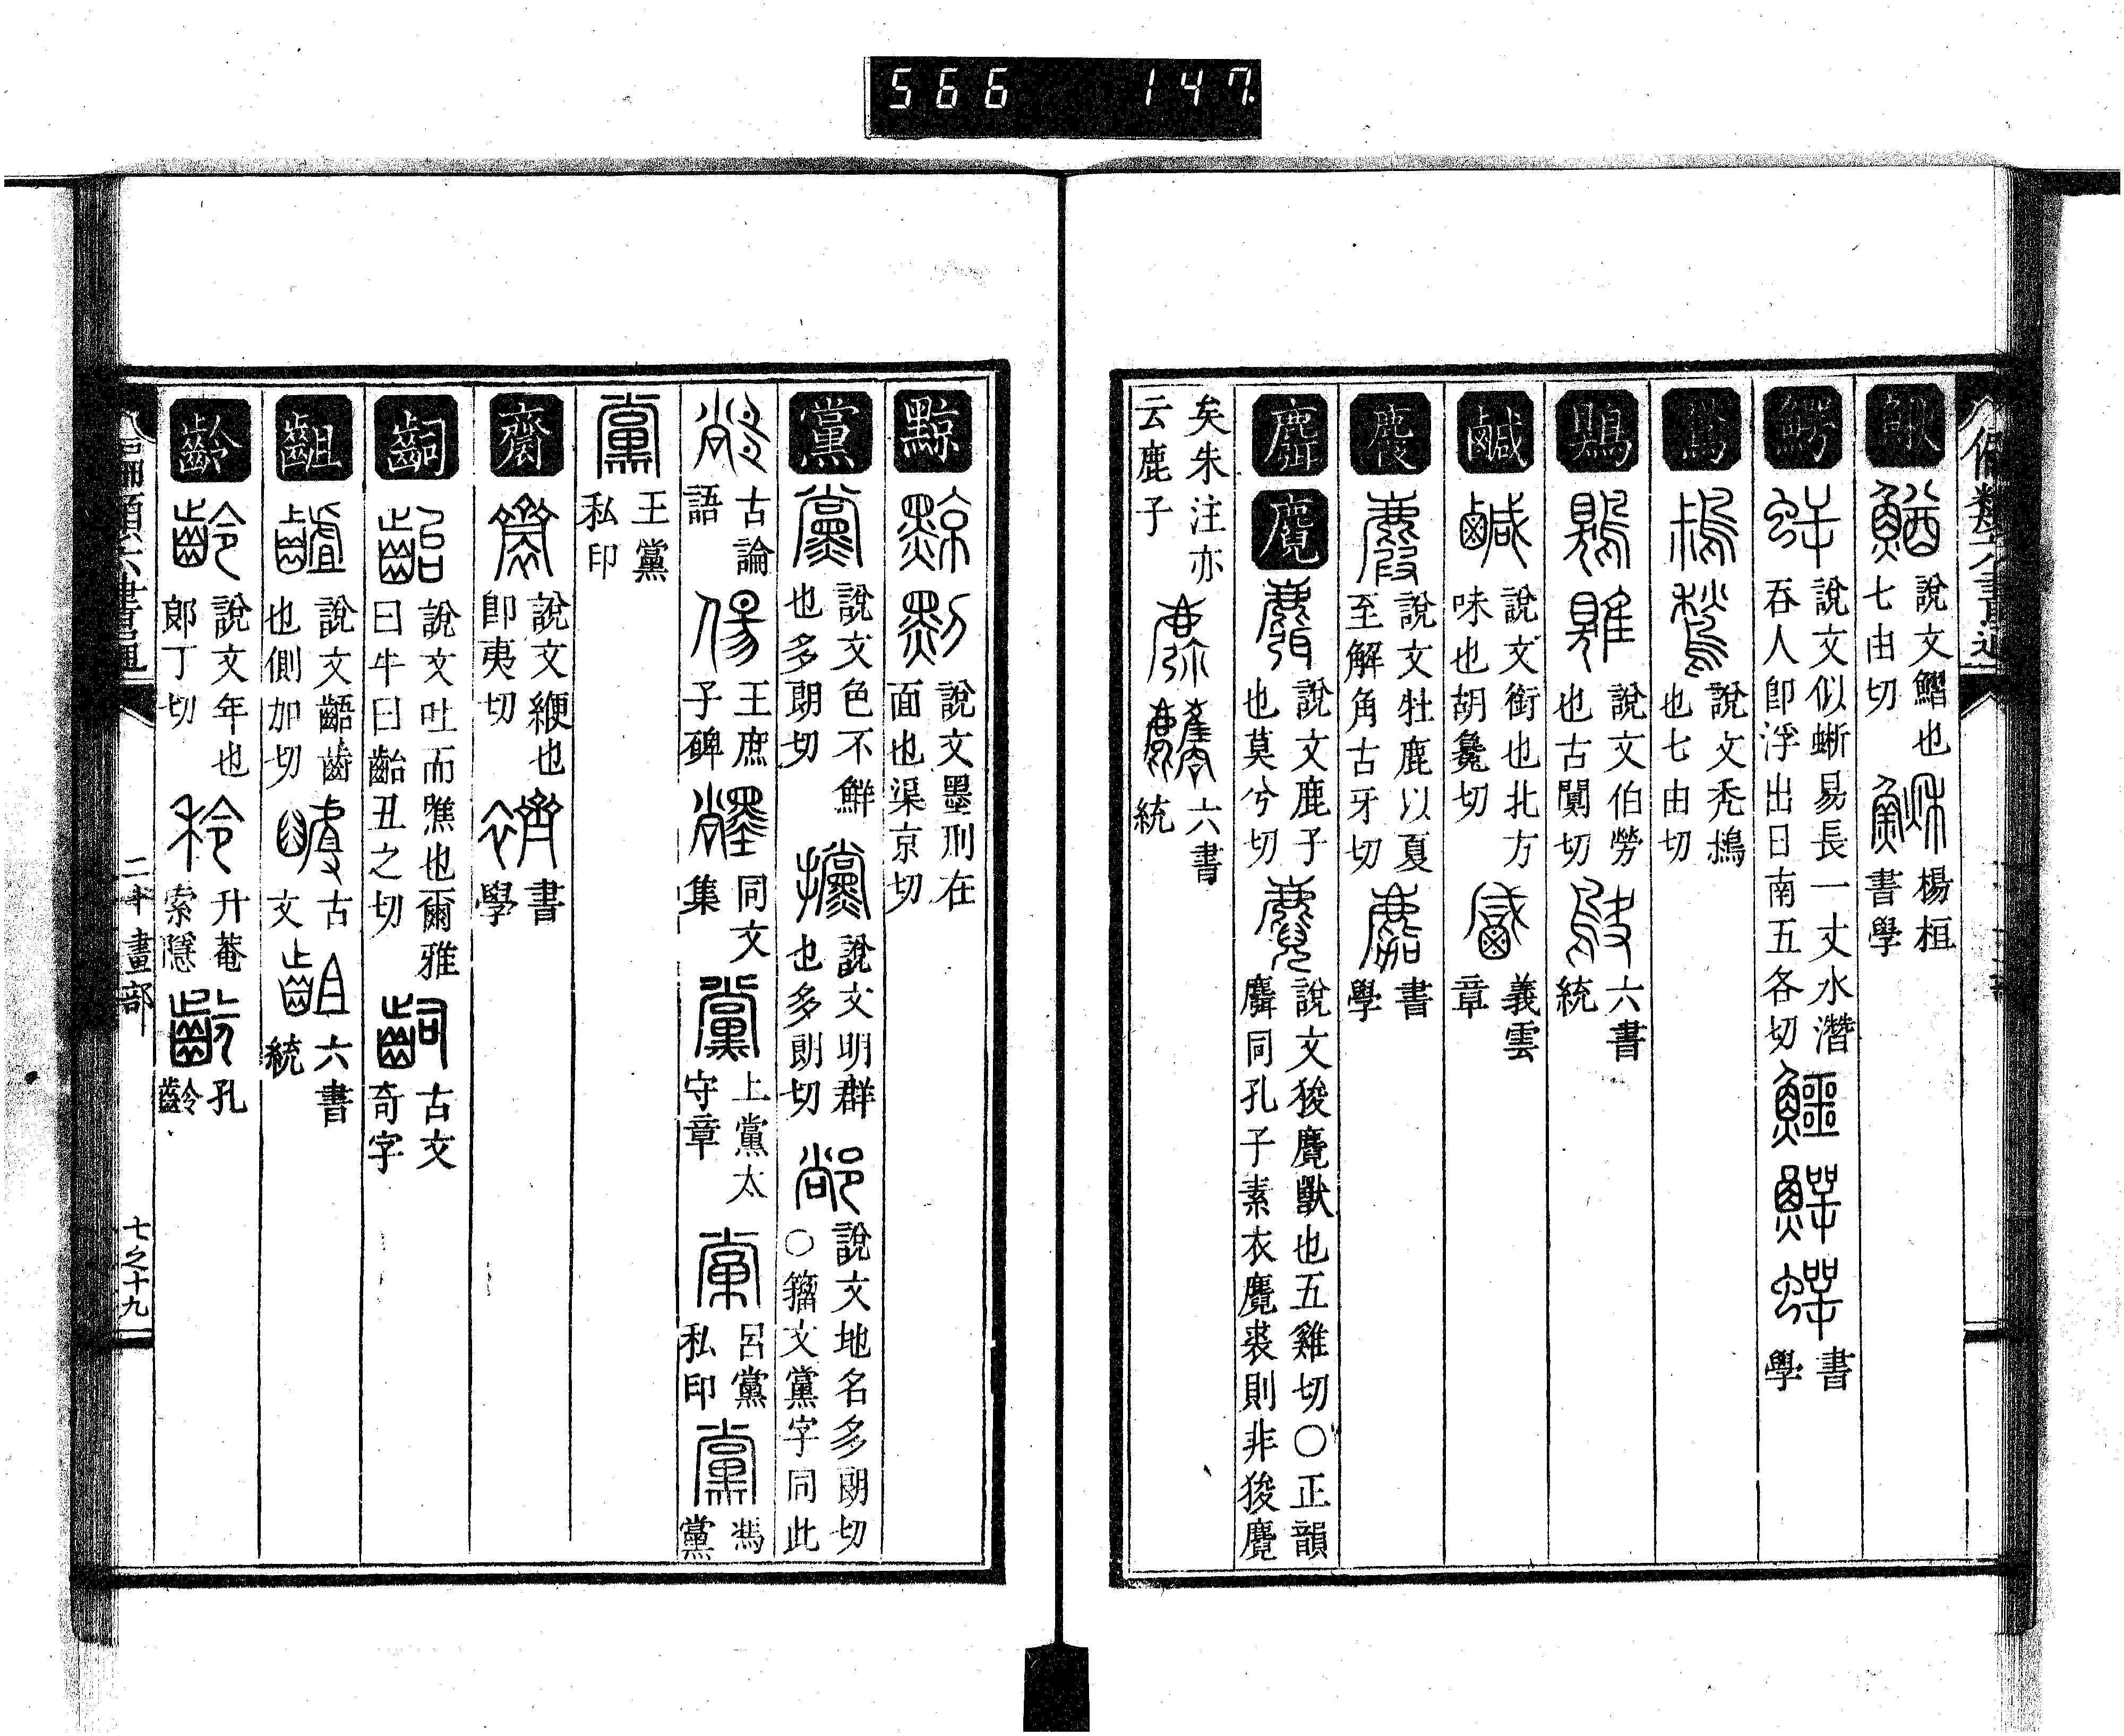 566 147
鰌 說文鰼也
七由切
楊桓
書學
說文似蜥易長一丈水潛
吞人即浮出日南五各切
書
學
說文禿鶖
也七由切
鶪 說文伯勞
也古闃切
六書
統
鹹 說文銜也北方
味也胡毚切
義雲
章
說文牡鹿以夏
至解角古牙切
書
學
麛 麑 說文鹿子
也莫兮切
說文狻麑獸也五雞切○正韻
麛同孔子素衣麑裘則非狻麑
矣朱注亦
云鹿子
六書
統
黥 說文墨刑在
面也渠京切
黨 說文色不鮮
也多朗切
說文朋群
也多朗切
說文地名多朗切
○籀文黨字同此
古論
語
王庶
子碑
同文
集
上黨太
守章
呂黨
私印
馮
黨
王黨
私印
齌 說文緶也
即夷切
書
學
齝 說文吐而噍也爾雅
曰牛曰齝丑之切
古文
奇字
齟 說文齬齒
也側加切
古
文
六書
統
齡 說文年也
郎丁切
升菴
索隱
孔
齡
二十畫部
七之十九